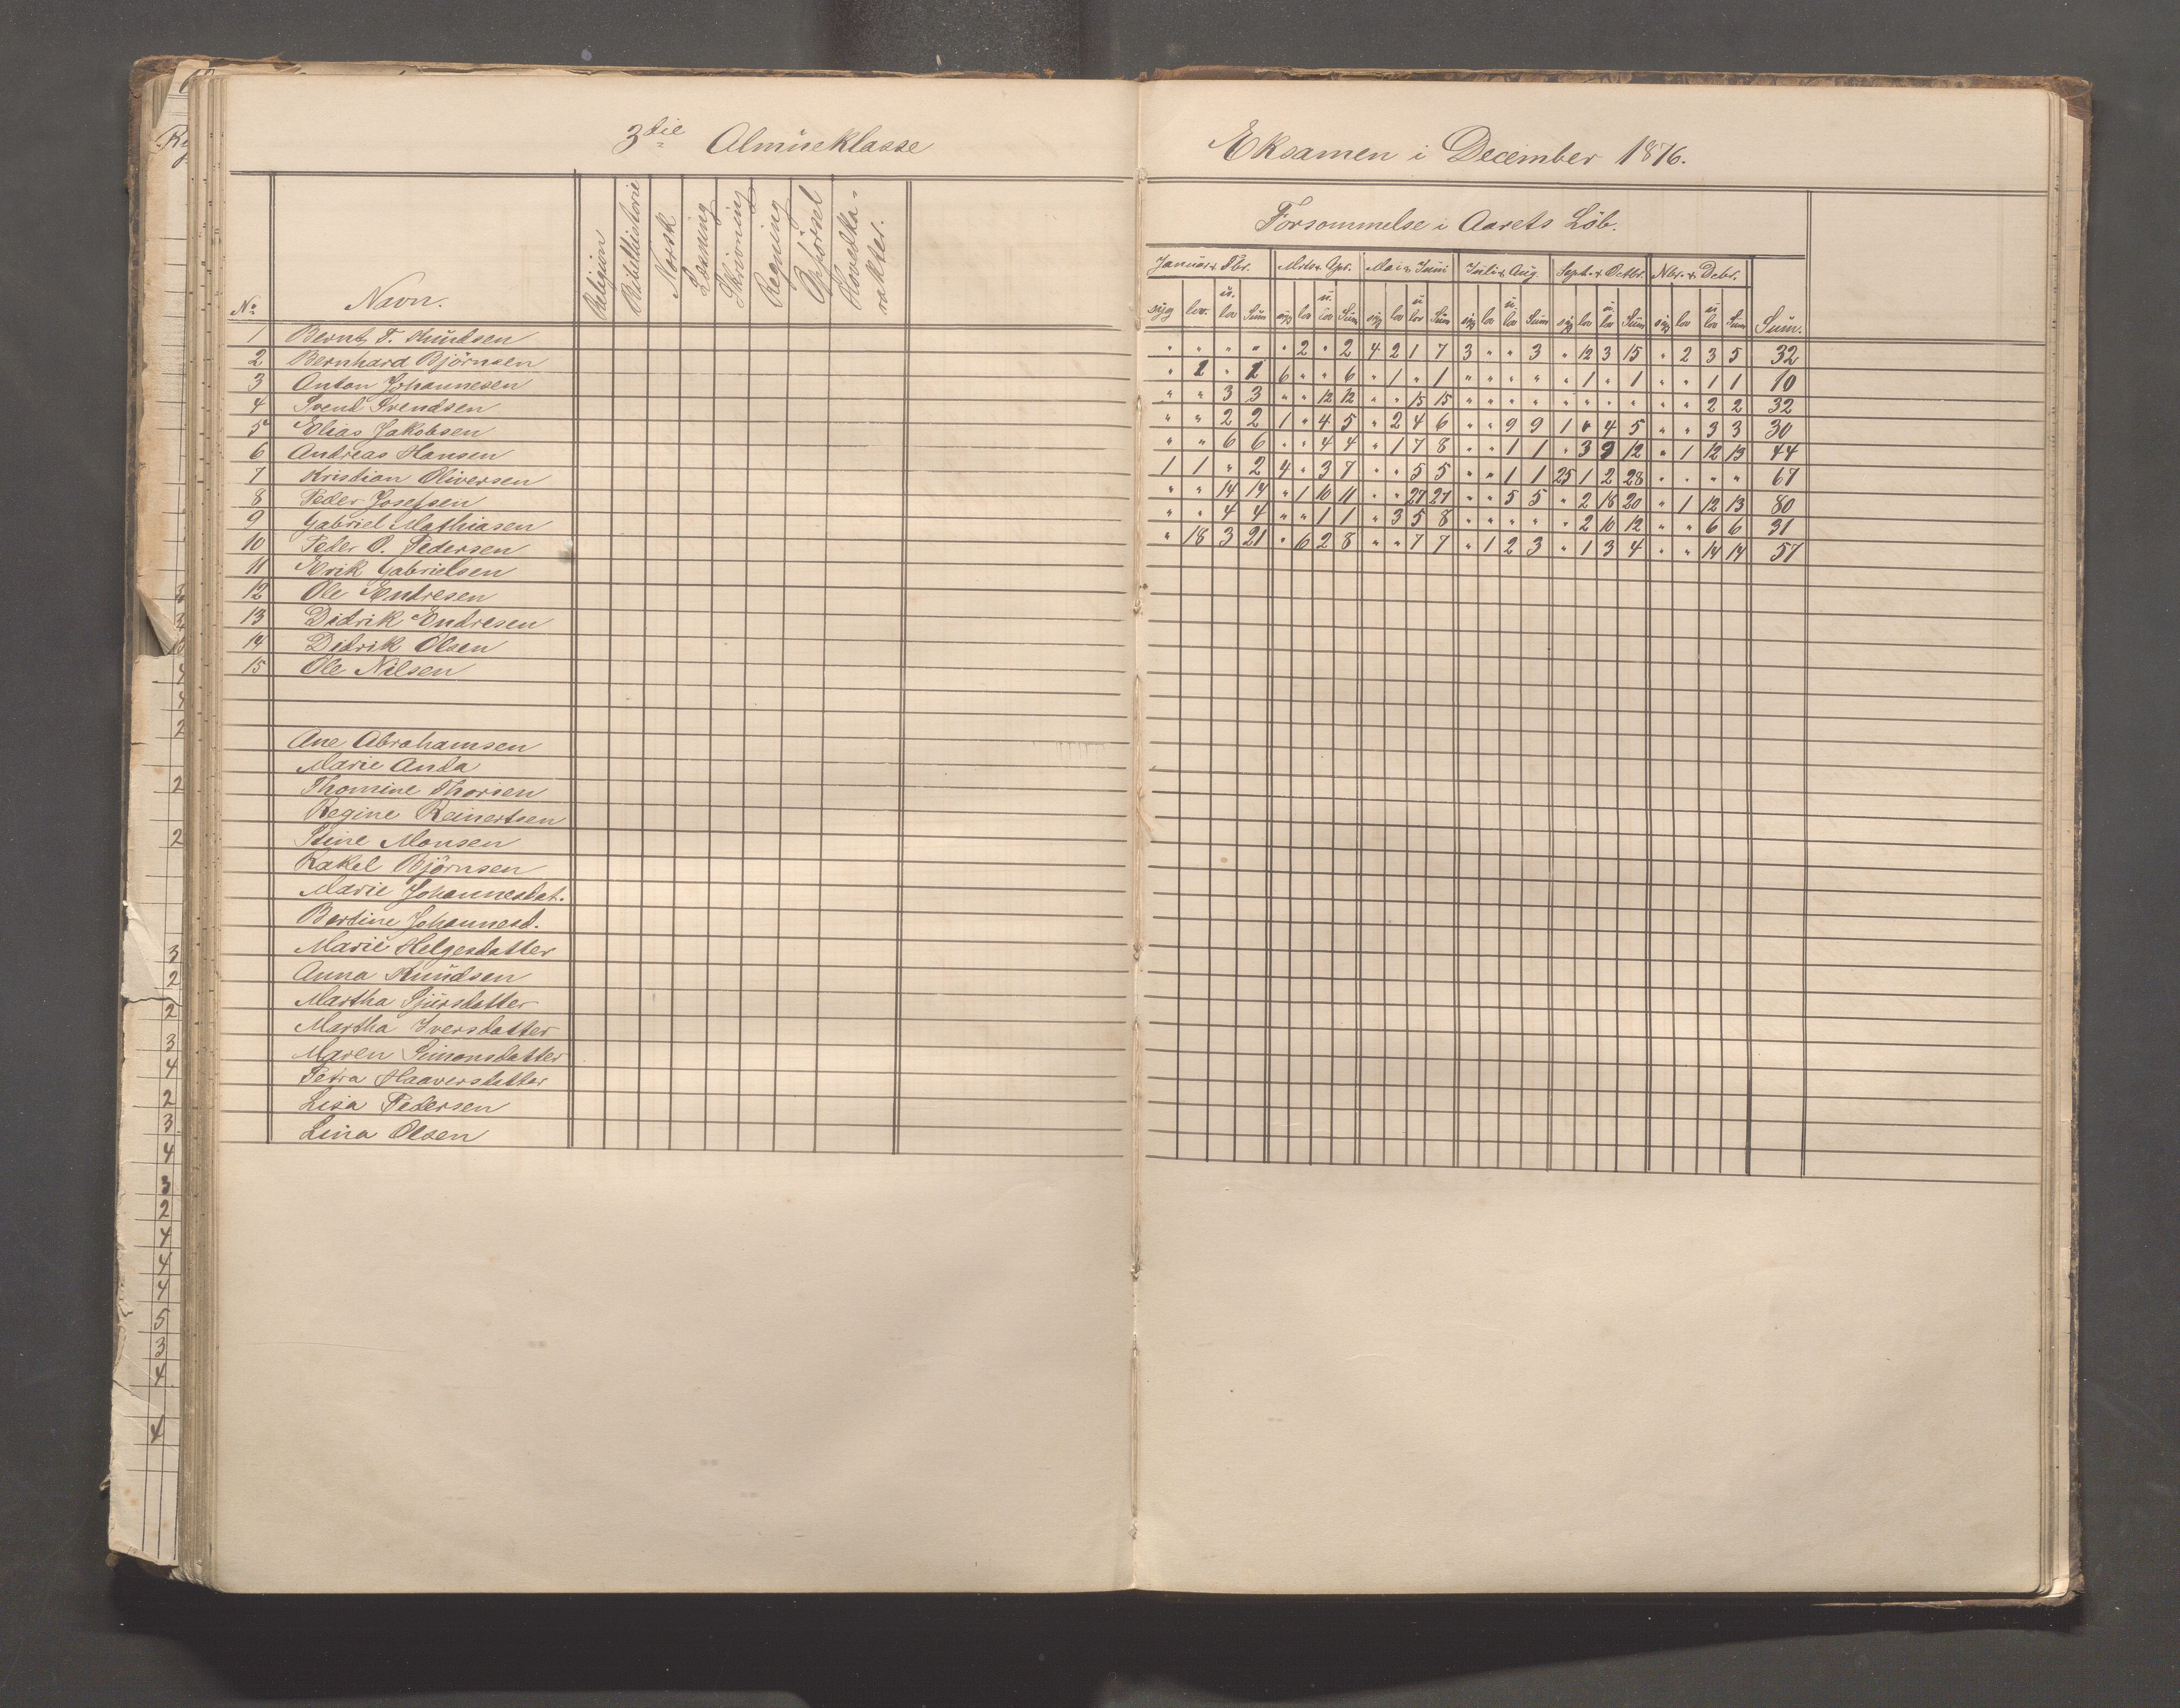 3die Almueklasse
Eksamen i December 1876.
Forsømmelse i Aarets Löb.
No Navn. Religion Bibelhistorie Norsk Læsning Skrivning Regning Opförsel Hovedkarakter.
Januar & Fbr. Mrts & Apr. Mai & Juni Juli & Aug. Sept. & Octbr. Nbr. & Debr.
syg lov. u. lov Sum syg lov u. lov Sum syg lov u lov Sum syg lov u lov Sum syg lov u lov Sum syg lov u lov Sum Sum.
1 Bernt T. Knudsen
2 Bernhard Björnsen
3 Anton Johannesen
4 Svend Svendsen
5 Elias Jakobsen
6 Andreas Hansen
7 Kristian Oliversen
8 Peder Josefsen
9 Gabriel Mathiasen
10 Peder O. Pedersen
11 Erik Gabrielsen
12 Ole Endresen
13 Didrik Endresen
14 Didrik Olsen
15 Ole Nilsen
Ane Abrahamsen
Marie Anda
Thomine Thorsen
Regine Reinertsen
Stine Monsen
Rakel Björnsen
Marie Johannesdat.
Bertine Johannesd.
Marie Helgesdatter
Anna Knudsen
Martha Sjursdatter
Martha Iversdatter
Maren Simonsdatter
Petra Haaversdatter
Lisa Pedersen
Lina Olsen
" " " " " 2 " 2 4 2 1 7 3 " " 3 " 12 3 15 " 2 3 5 32
" 1 " 1 6 " " 6 " 1 " 1 " " " " " 1 " 1 " " 1 1 10
" " 3 3 " " 12 12 " " 15 15 " " " " " " " " " " 2 2 32
" " 2 2 1 " 4 5 " 2 4 6 " " 9 9 1 " 4 5 " " 3 3 30
" " 6 6 " " 4 4 " 1 7 8 " " 1 1 " 3 9 12 " 1 12 13 44
1 1 " 2 4 " 3 7 " " 5 5 " " 1 1 25 1 2 28 " " " " 67
" " 14 14 " 1 10 11 " " 27 27 " " 5 5 " 2 18 20 " 1 12 13 80
" " 4 4 " " 1 1 " 3 5 8 " " " " " 2 10 12 " " 6 6 31
" 18 3 21 " 6 2 8 " " 7 7 " 1 2 3 " 1 3 4 " " 14 14 57